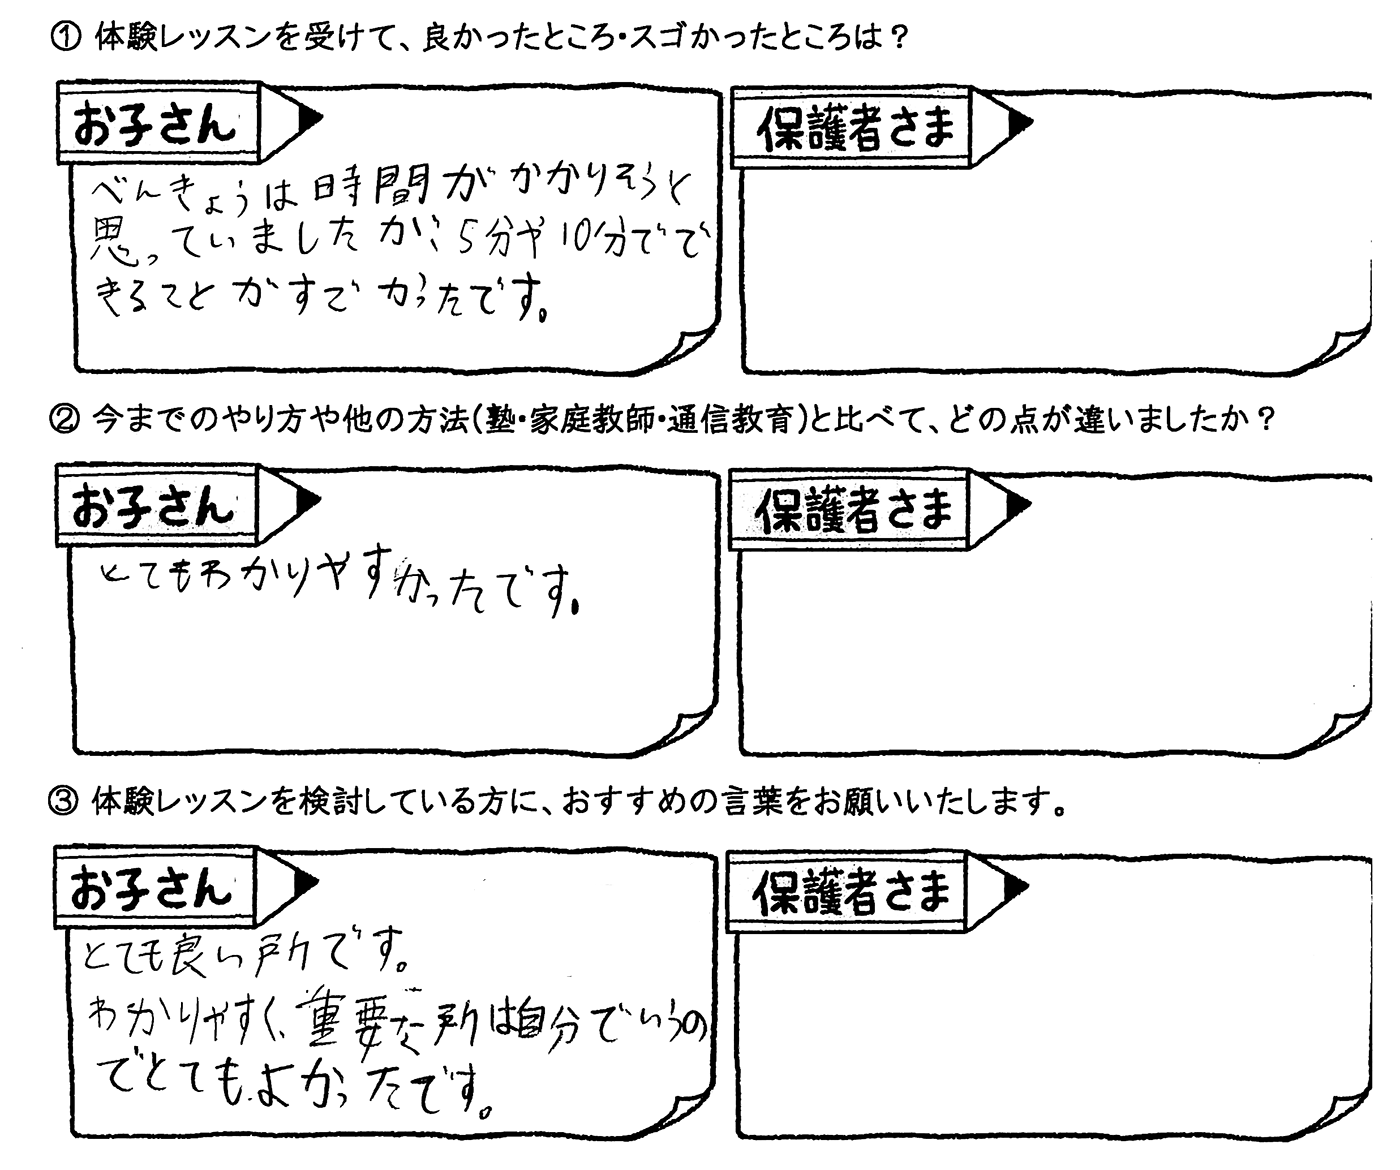 ① 体験レッスンを受けて、良かったところ・スゴかったところは？
お子さん
保護者さま
べんきょうは時間がかかりそうと
思っていましたが、5分や10分でで
きることがすごかったです。
② 今までのやり方や他の方法(塾・家庭教師・通信教育)と比べて、どの点が違いましたか？
お子さん
保護者さま
とてもわかりやすかったです。
③ 体験レッスンを検討している方に、おすすめの言葉をお願いいたします。
お子さん
保護者さま
とても良い所です。
わかりやすく、重要な所は自分でいうの
でとてもよかったです。